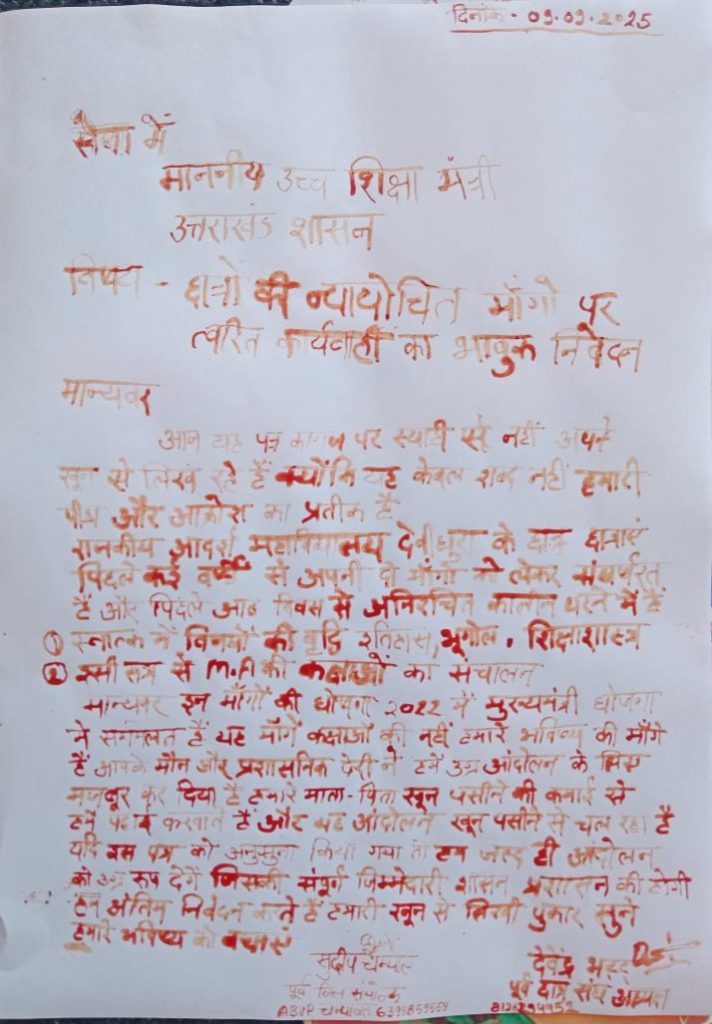 दिनांक - 09.09.2025
सेवा में
माननीय उच्च शिक्षा मंत्री
उत्तराखंड शासन
विषय - छात्रों की न्यायोचित माँगो पर
त्वरित कार्यवाही का भावुक निवेदन
मान्यवर
आज यह पत्र कागज पर स्याही से नहीं अपने
खून से लिख रहे हैं क्योंकि यह केवल शब्द नहीं हमारी
पीड़ा और आक्रोश का प्रतीक है
राजकीय आदर्श महाविद्यालय देवीधुरा के छात्र छात्राएं
पिछले कई वर्षों से अपनी दो माँगों को लेकर संघर्षरत
हैं और पिछले आठ दिवस से अनिश्चित कालीन धरने में हैं
① स्नातक में विषयों की वृद्धि इतिहास, भूगोल, शिक्षाशास्त्र
② इसी सत्र से M.A की कक्षाओं का संचालन
मान्यवर इन माँगों की घोषणा 2022 में मुख्यमंत्री घोषणा
में सम्मिलत हैं यह माँगें कक्षाओं की नहीं हमारे भविष्य की माँगे
हैं आपके मौन और प्रशासनिक देरी ने हमें उग्र आंदोलन के लिए
मजबूर कर दिया है हमारे माता-पिता खून पसीने की कमाई से
हमें पढाई करवाते हैं और यह आंदोलन खून पसीने से चल रहा है
यदि इस पत्र को अनुसुना किया गया तो हम जल्द ही आंदोलन
को उग्र रूप देगें जिसकी संपूर्ण जिम्मेदारी शासन प्रशासन की होगी
हम अंतिम निवेदन करते हैं हमारी खून से लिखी पुकार सुने
हमारे भविष्य को बचाएं
सुदीप चम्याल
पूर्व जिला संयोजक
ABVP चम्पावत
देवेंद्र भट्ट
पूर्व छात्र संघ अध्यक्ष